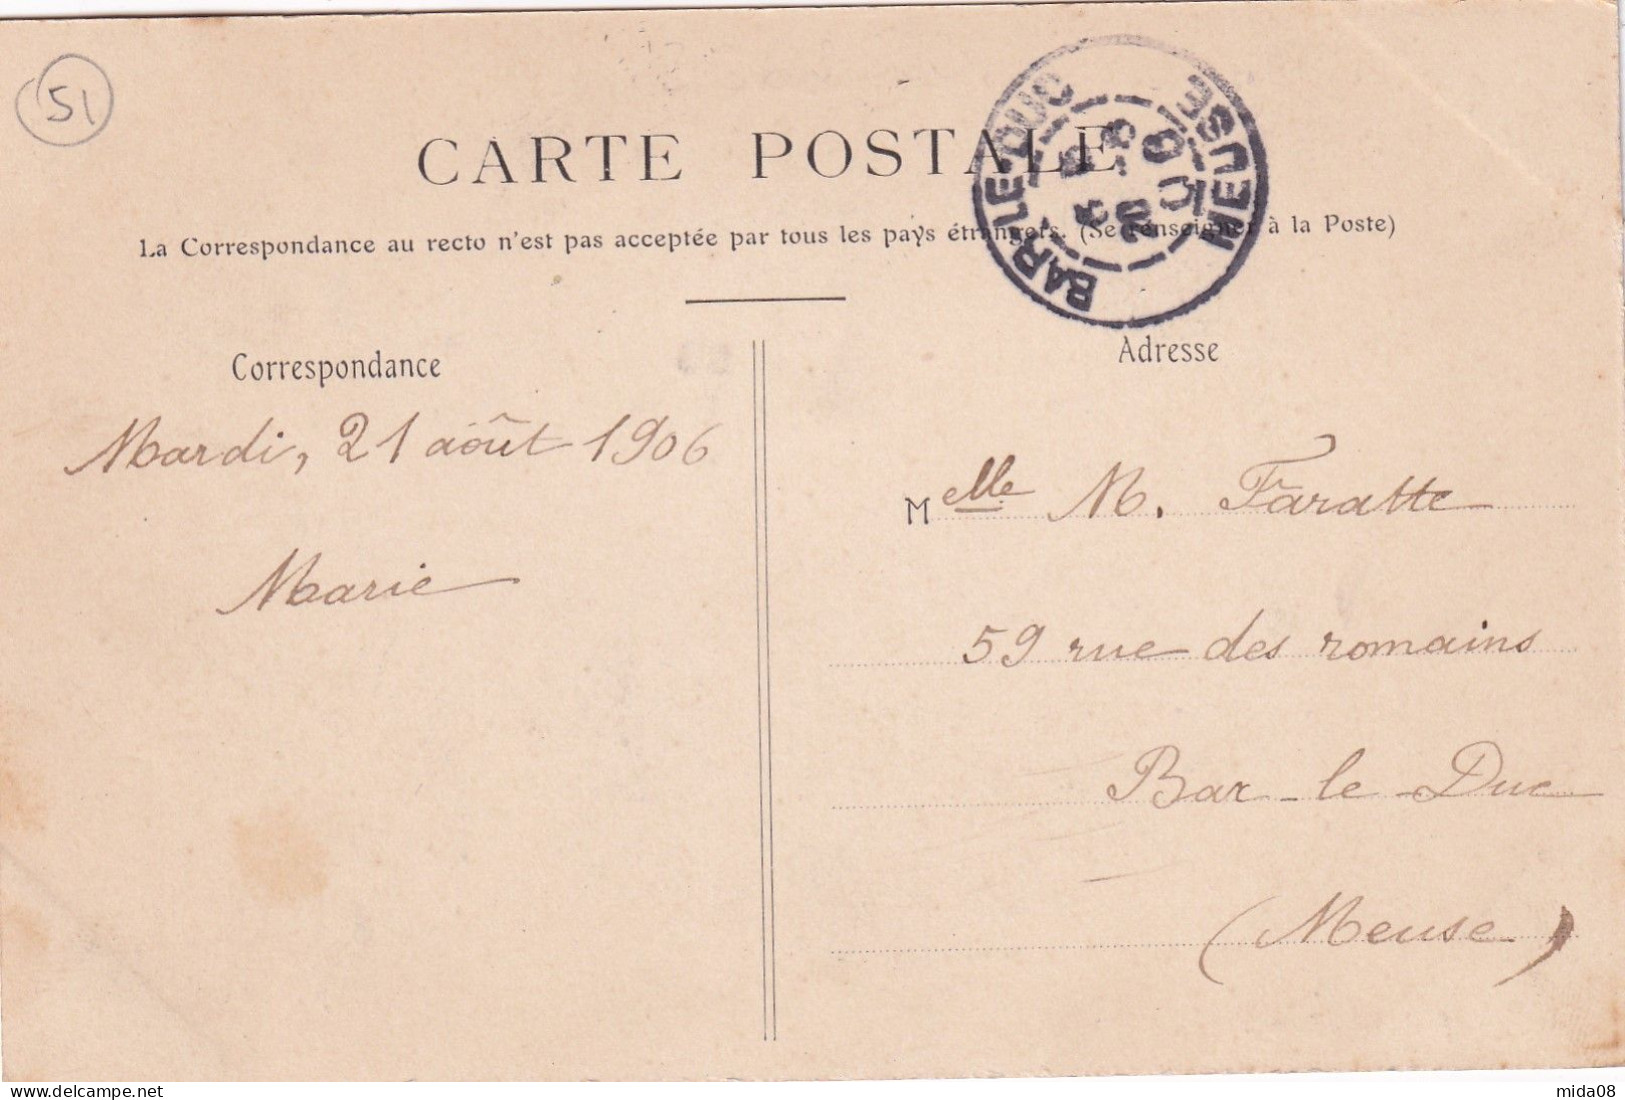 51
CARTE POSTALE
La Correspondance au recto n'est pas acceptée par tous les pays étrangers. (Se renseigner à la Poste)
BAR-LE-DUC
MEUSE
Correspondance
Adresse
Mardi, 21 août 1906
Marie
Melle M. Faratte
59 rue des romains
Bar-le-Duc
(Meuse)
mida08